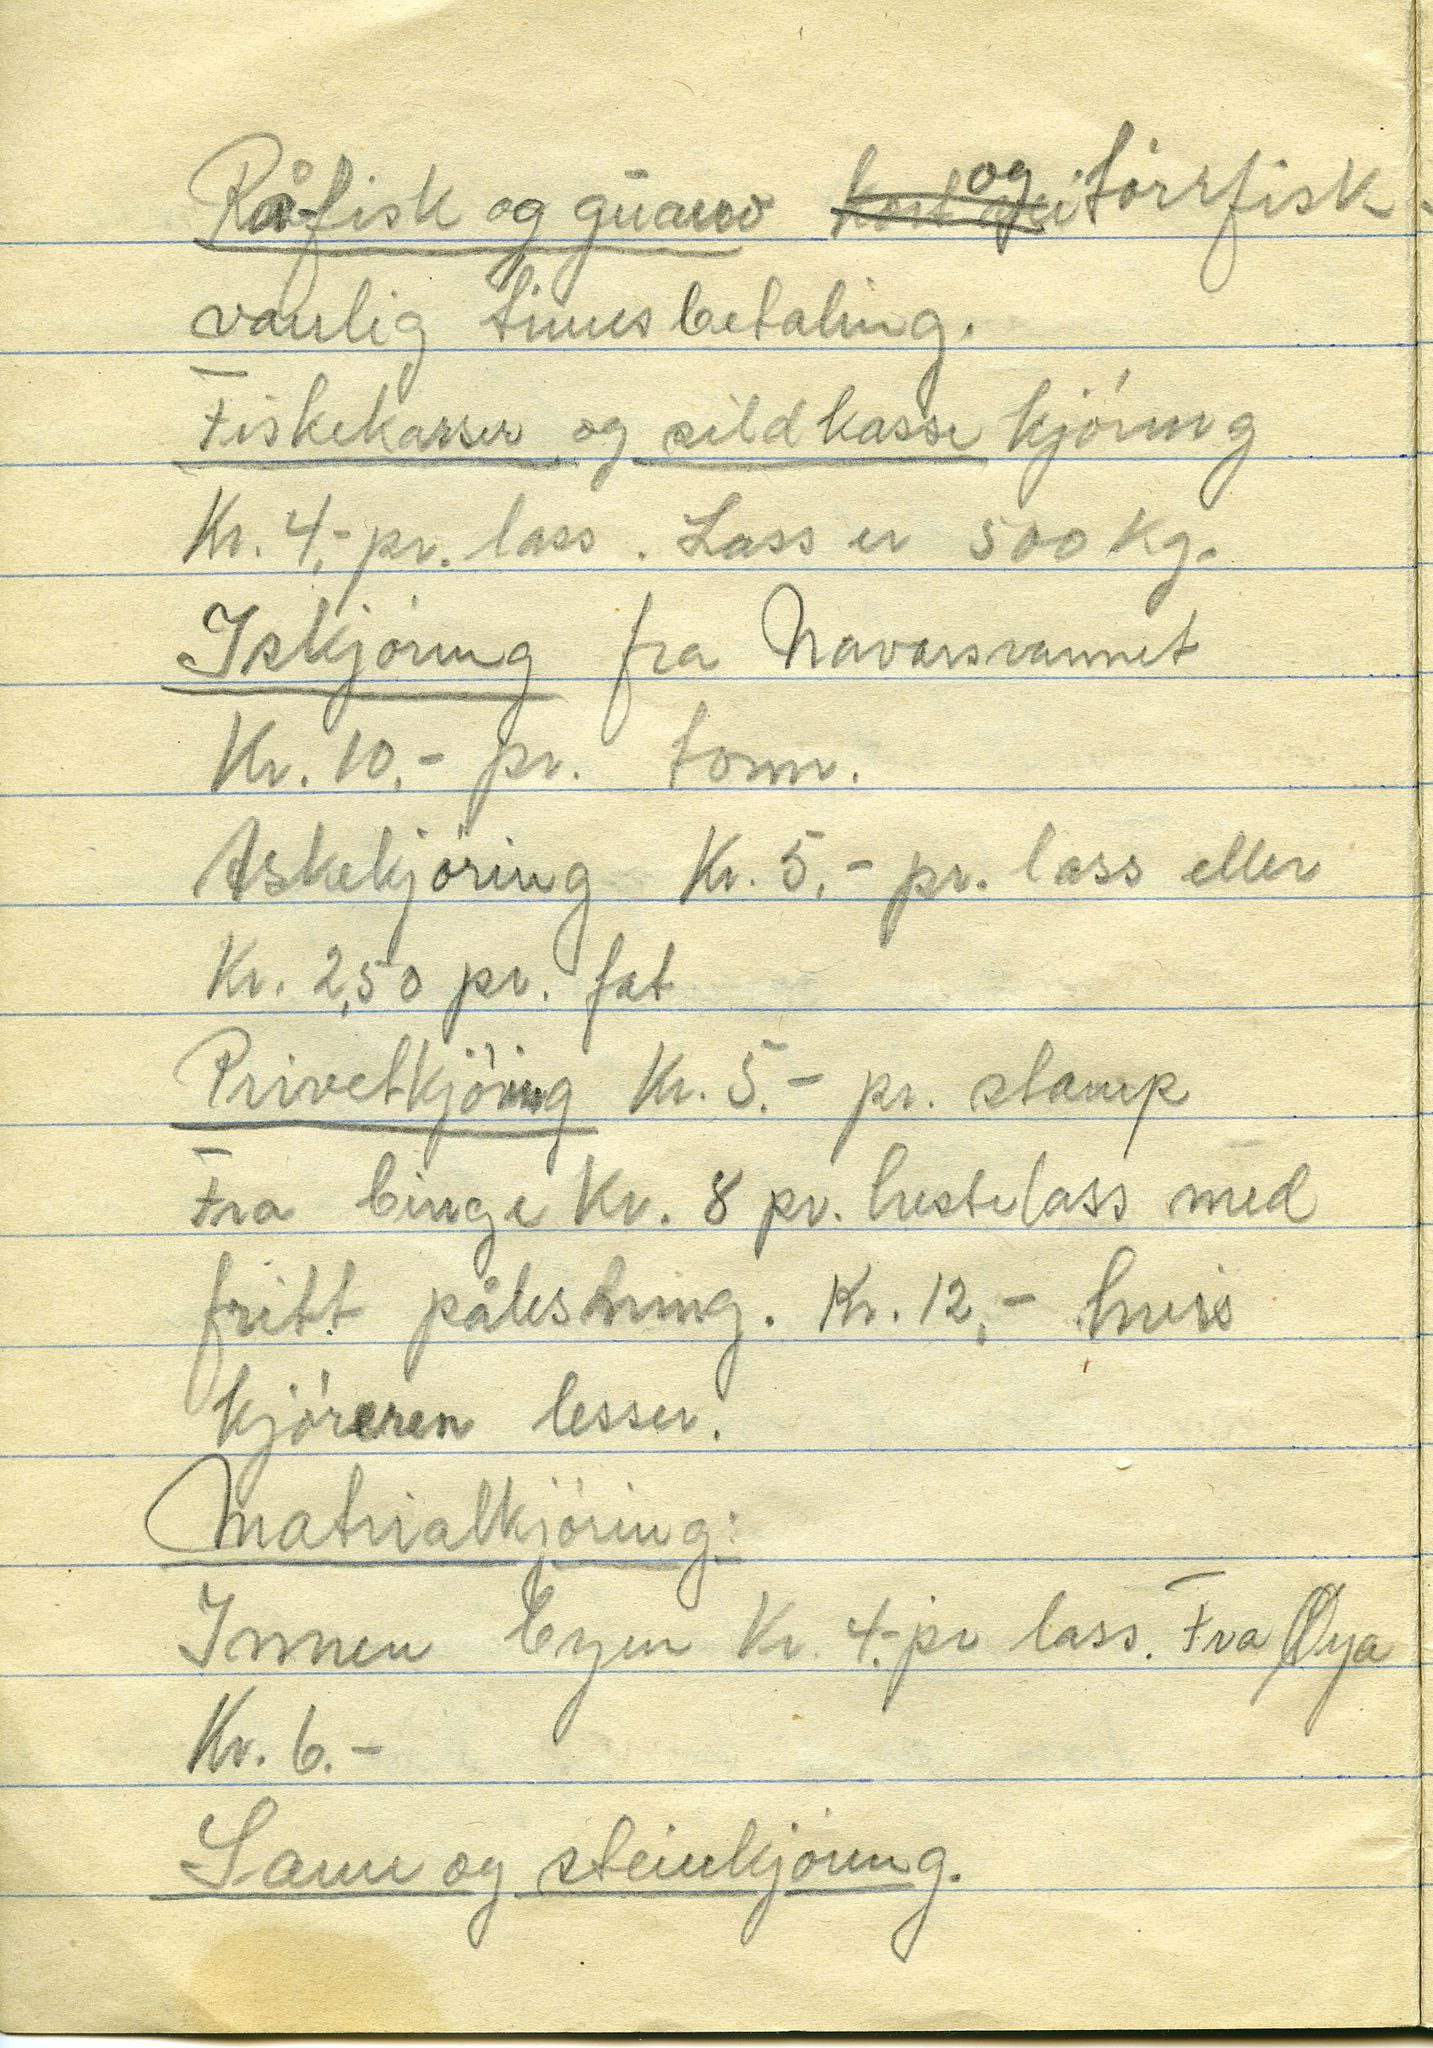 Råfisk og guano og tørrfisk
vanlig timesbetaling.
Fiskekasser og sildkasse kjøring
Kr. 4,- pr. lass. Lass er 500 kg.
Iskjøring fra Navarsvannet
Kr. 10.- pr. tonn.
Askekjøring Kr. 5,- pr. lass eller
Kr. 2,50 pr. fat
Privetkjøring Kr. 5.- pr. stamp
Fra binge Kr. 8 pr. hestelass med
fritt pålestning. Kr. 12,- hvis
kjøreren lesser.
Matrialkjøring:
Innen byen Kr. 4.- pr lass. Fra Øya
Kr. 6.-
Sann og steinkjøring.